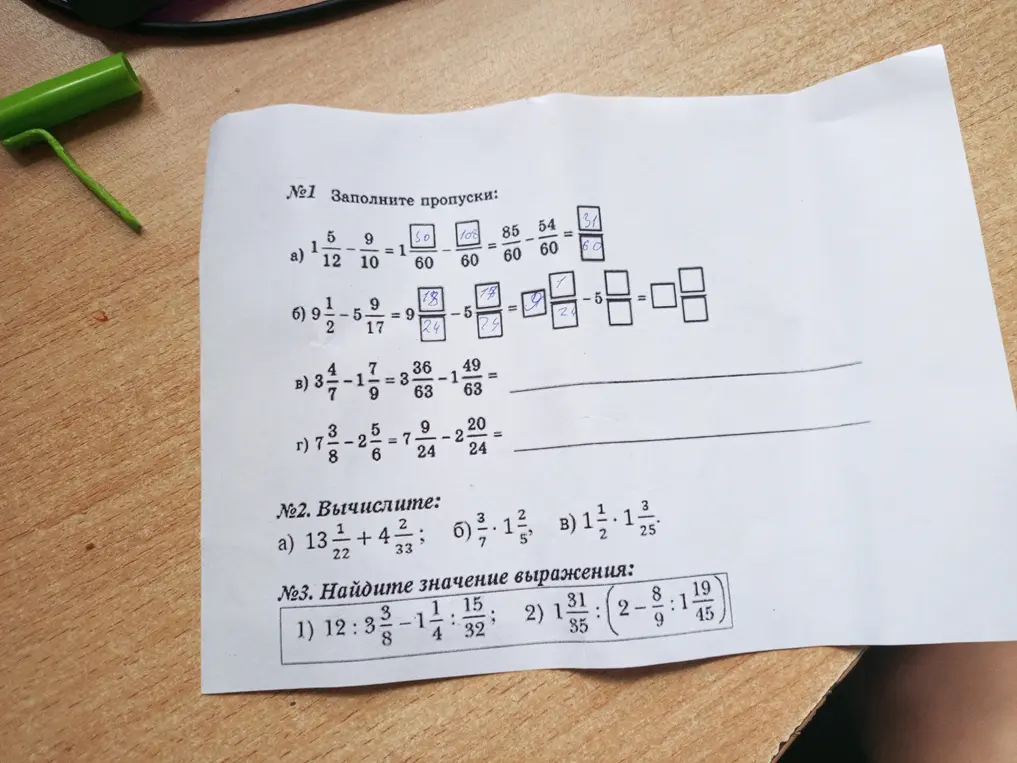 №1 Заполните пропуски:
а) 1 5/12 − 9/10 = 1 50/60 − 108/60 = 85/60 − 54/60 = 31/60
б) 9 1/2 − 5 9/17 = 9 18/24 − 5 17/24 = 9 1/24 − 5 □/□ = □ □/□
в) 3 4/7 − 1 7/9 = 3 36/63 − 1 49/63 =
г) 7 3/8 − 2 5/6 = 7 9/24 − 2 20/24 =
№2. Вычислите:
а) 13 1/22 + 4 2/33; б) 3/7 · 1 2/5, в) 1 1/2 · 1 3/25.
№3. Найдите значение выражения:
1) 12 : 3 3/8 − 1 1/4 : 15/32; 2) 1 31/35 : (2 − 8/9 : 1 19/45)